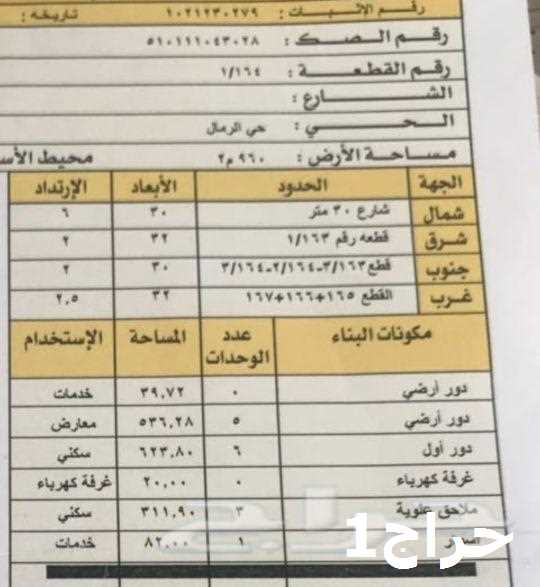 رقم الإثبات : ١٠٢١٢٣٠٢٧٩ تاريخه :
رقم الصك : ٥١٠١١١٠٤٣٠٢٨
رقم القطعة : ١/١٦٤
الشارع :
الحي : حي الرمال
مساحة الأرض : ٩٦٠ م٢ محيط الأس
الجهة الحدود الأبعاد الإرتداد
شمال شارع ٣٠ متر ٣٠ ٦
شرق قطعه رقم ١/١٦٣ ٣٢ ٢
جنوب قطع ٣/١٦٣-٢/١٦٤-٣/١٦٤ ٣٠ ٢
غرب القطع ١٦٥+١٦٦+١٦٧ ٣٢ ٢,٥
مكونات البناء عدد الوحدات المساحة الإستخدام
دور أرضي ٠ ٣٩,٧٢ خدمات
دور أرضي ٥ ٥٣٦,٢٨ معارض
دور أول ٦ ٦٢٣,٨٠ سكني
غرفة كهرباء ٠ ٢٠,٠٠ غرفة كهرباء
ملاحق علوية ٣ ٣١١,٩٠ سكني
١ ٨٢,٠٠ خدمات
حراج1